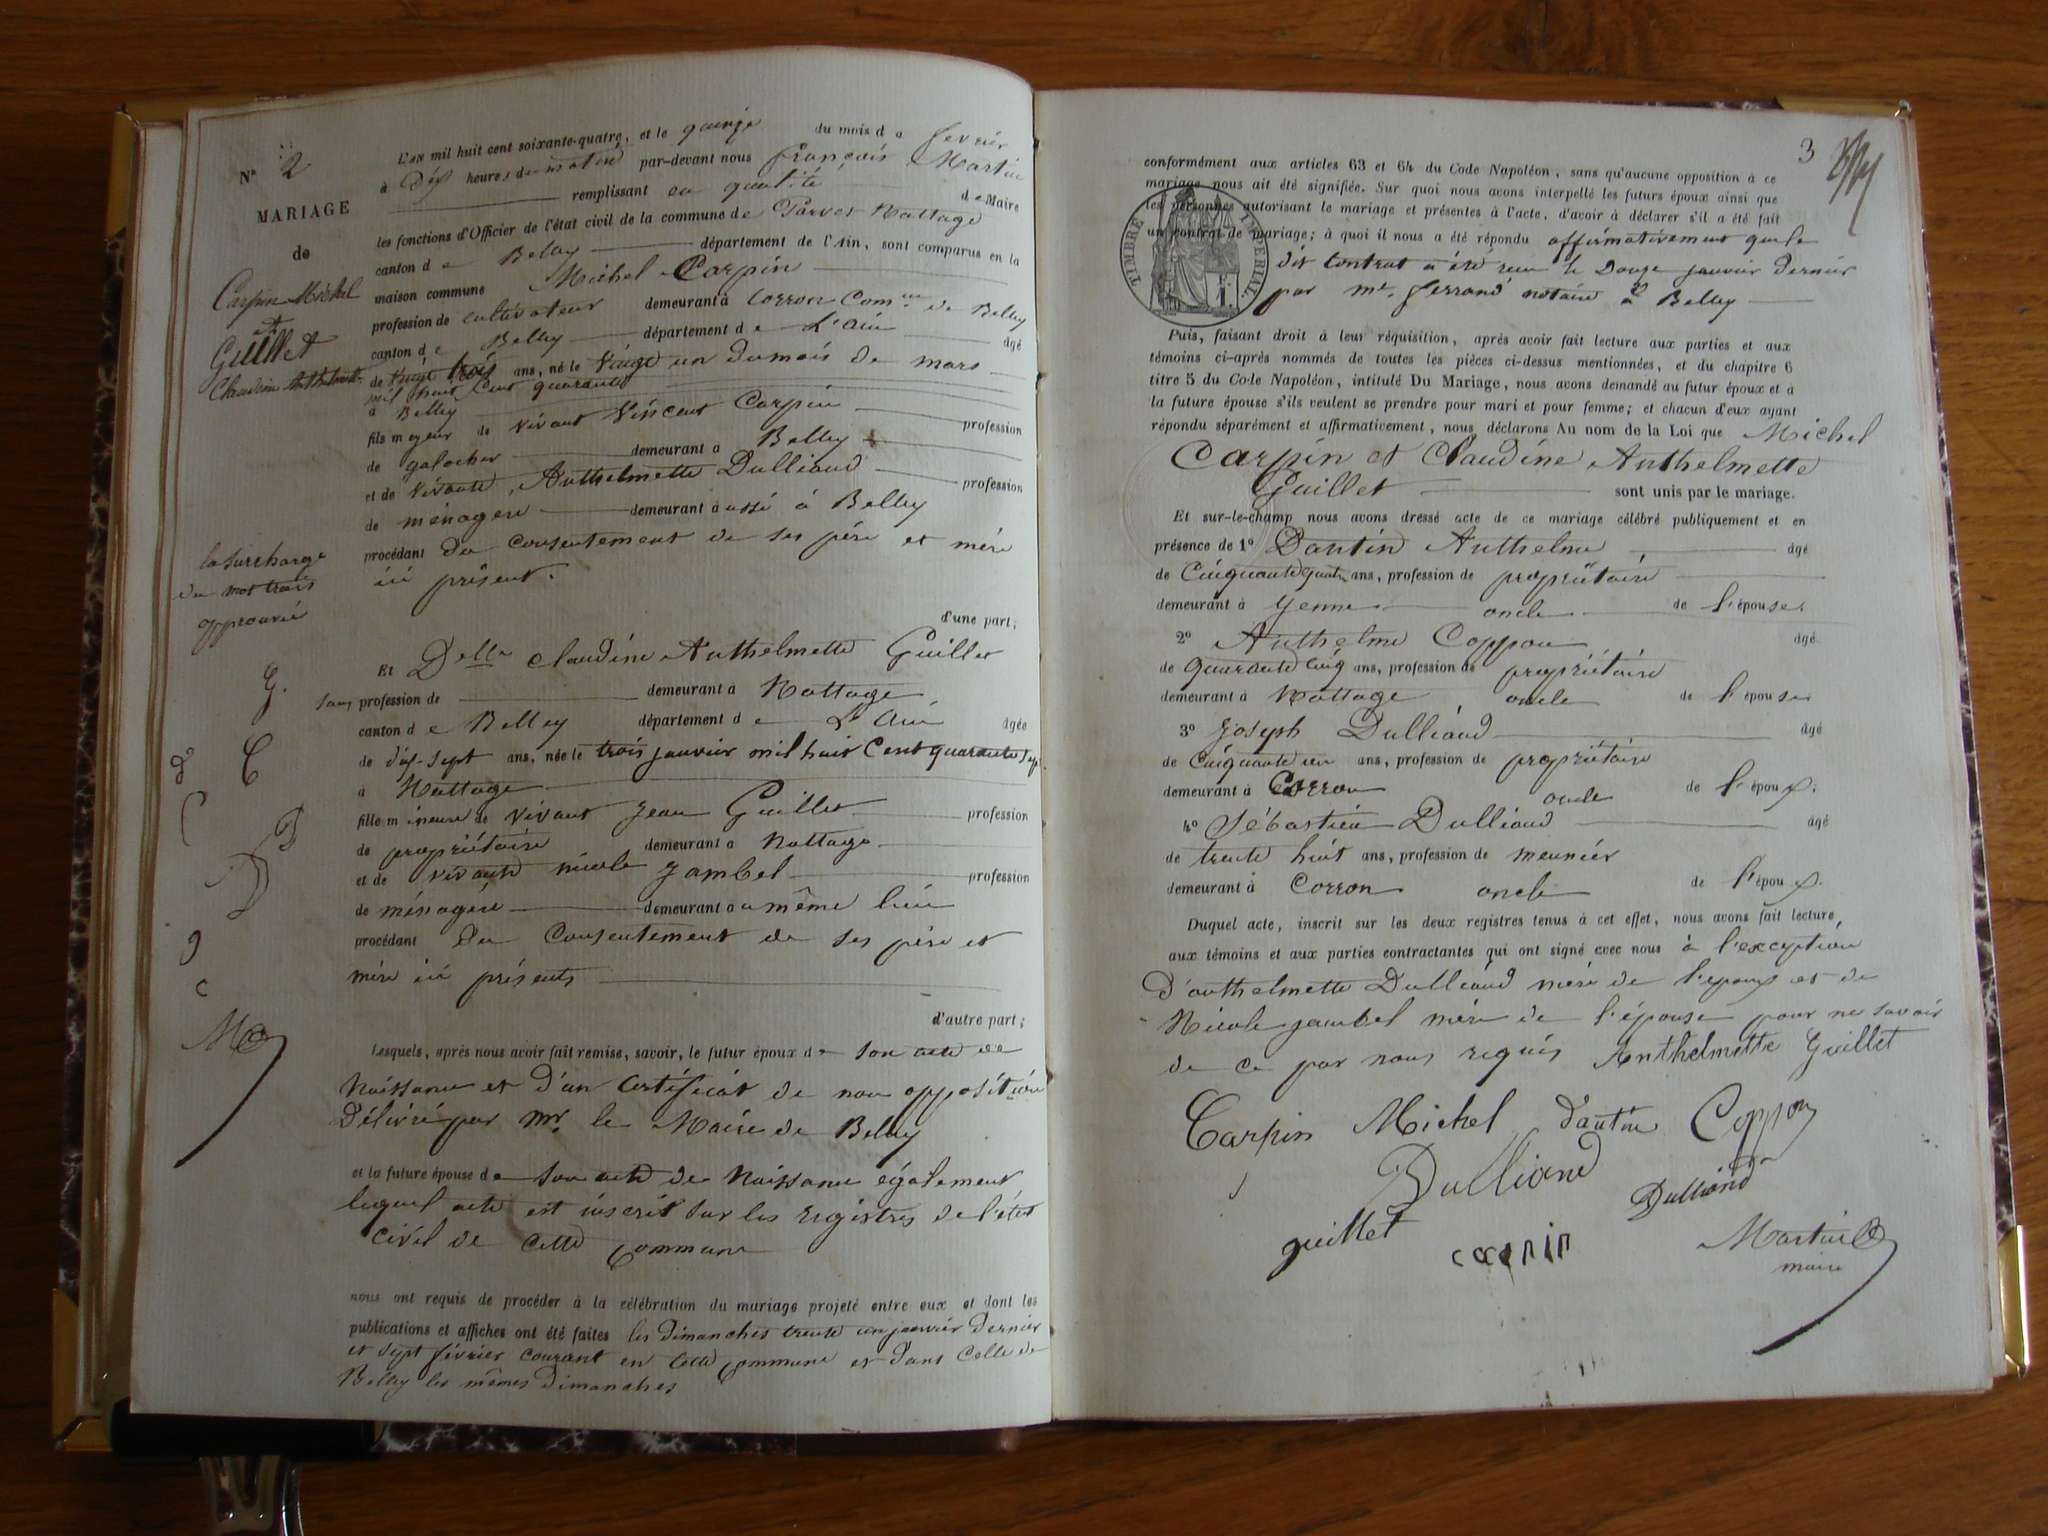 N° 2
MARIAGE
de
Carpin Michel
et
Guillet
Claudine Anthelmette
la surcharge
du mot trois
approuvée
L'an mil huit cent soixante-quatre, et le quinze du mois de février
à dix heures du matin par-devant nous François Martin
remplissant en qualité de Maire
les fonctions d'Officier de l'état civil de la commune de Parves Nattage
canton de Belley département de l'Ain, sont comparus en la
maison commune Michel Carpin
profession de cultivateur demeurant à Corron Comune de Belley
canton de Belley département de L'Ain âgé
de vingt trois ans, né le vingt un du mois de mars
mil huit cent quarante
à Belley
fils majeur de vivant Vincent Carpin profession
de galocher demeurant à Belley
et de vivante Anthelmette Dulliand profession
de ménagère demeurant aussi à Belley
procédant du consentement de ses père et mère
ici présent.
d'une part;
Et Delle Claudine Anthelmette Guillet
sans profession de demeurant à Nattage
canton de Belley département de L'Ain âgée
de dix-sept ans, née le trois janvier mil huit cent quarante sept
à Nattage
fille mineure de vivant Jean Guillet profession
de propriétaire demeurant à Nattage
et de vivante Nicole Jambel profession
de ménagère demeurant au même lieu
procédant du consentement de ses père et
mère ici présents
d'autre part;
Lesquels, après nous avoir fait remise, savoir, le futur époux de son acte de
Naissance et d'un certificat de non opposition
délivré par Mr. le Maire de Belley
et la future épouse de son acte de Naissance également
lequel acte est inscrit sur les registres de l'état
civil de cette commune
nous ont requis de procéder à la célébration du mariage projeté entre eux et dont les
publications et affiches ont été faites les dimanches trente un janvier dernier
et sept février courant en cette commune et dans celle de
Belley les mêmes dimanches
3
conformément aux articles 63 et 64 du Code Napoléon, sans qu'aucune opposition à ce
mariage nous ait été signifiée. Sur quoi nous avons interpellé les futurs époux ainsi que
les personnes autorisant le mariage et présentes à l'acte, d'avoir à déclarer s'il a été fait
un contrat de mariage; à quoi il nous a été répondu affirmativement que le
dit contrat a été reçu le Douze janvier dernier
par me. Ferrand notaire à Belley
TIMBRE IMPÉRIAL
Puis, faisant droit à leur réquisition, après avoir fait lecture aux parties et aux
témoins ci-après nommés de toutes les pièces ci-dessus mentionnées, et du chapitre 6
titre 5 du Code Napoléon, intitulé Du Mariage, nous avons demandé au futur époux et à
la future épouse s'ils veulent se prendre pour mari et pour femme; et chacun d'eux ayant
répondu séparément et affirmativement, nous déclarons Au nom de la Loi que Michel
Carpin et Claudine Anthelmette
Guillet sont unis par le mariage.
Et sur-le-champ nous avons dressé acte de ce mariage célébré publiquement et en
présence de 1° Dantin Anthelme âgé
de Cinquante quatre ans, profession de propriétaire
demeurant à Yenne oncle de l'épouse
2° Anthelme Coppon âgé
de quarante cinq ans, profession de propriétaire
demeurant à Nattage oncle de l'épouse
3° Joseph Dulliand âgé
de Cinquante un ans, profession de propriétaire
demeurant à Corron oncle de l'époux.
4° Sébastien Dulliand âgé
de trente huit ans, profession de meunier
demeurant à Corron oncle de l'époux.
Duquel acte, inscrit sur les deux registres tenus à cet effet, nous avons fait lecture
aux témoins et aux parties contractantes qui ont signé avec nous à l'exception
d'anthelmette Dulliand mère de l'époux et de
Nicole Jambel mère de l'épouse pour ne savoir
de ce par nous requis Anthelmette Guillet
Carpin Michel Dantin Coppon
Dulliand Dulliand
guillet carpin Martin
maire